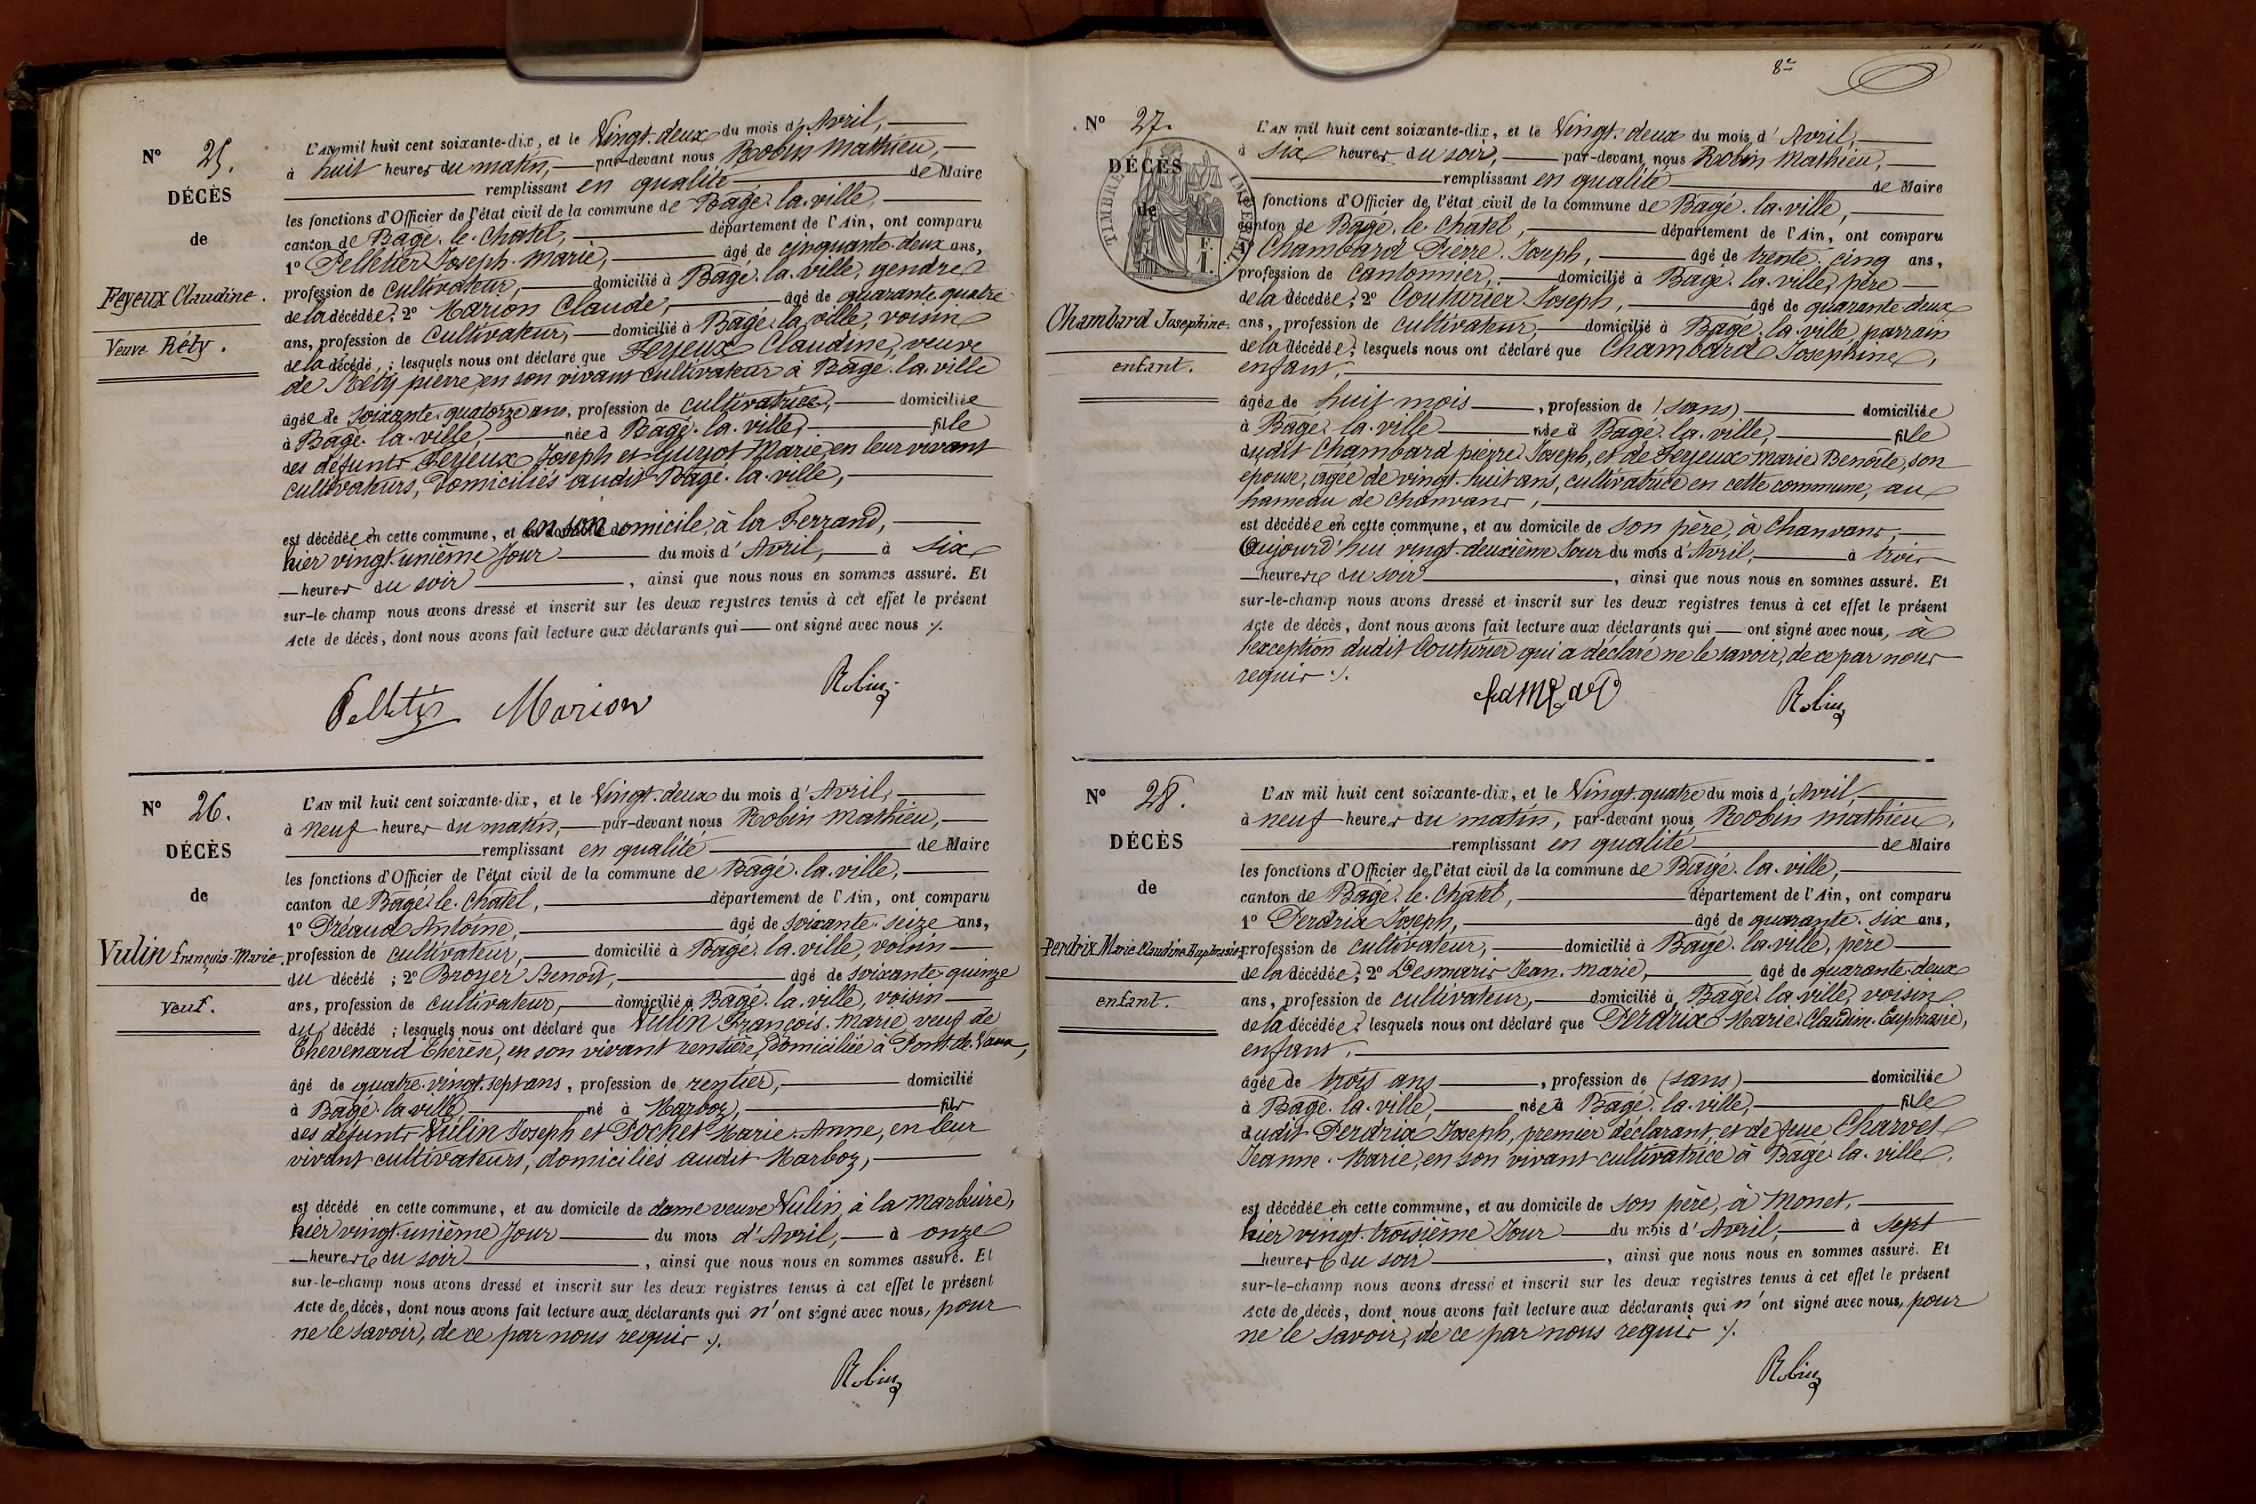 N° 25.
DÉCÈS
de
Feyeux Claudine.
Veuve Réty.
L'AN mil huit cent soixante-dix, et le Vingt-deux du mois d'Avril,
à huit heures du matin, par-devant nous Robin Mathieu,
remplissant en qualité de Maire
les fonctions d'Officier de l'état civil de la commune de Bagé-la-ville,
canton de Bâgé-le-Chatel, département de l'Ain, ont comparu
1° Pelletier Joseph-Marie, âgé de cinquante-deux ans,
profession de cultivateur, domicilié à Bagé-la-ville, gendre
de la décédée; 2° Marion Claude, âgé de quarante-quatre
ans, profession de cultivateur, domicilié à Bagé-la-ville, voisin
de la décédé, ; lesquels nous ont déclaré que Feyeux Claudine, veuve
de Réty pierre, en son vivant cultivateur à Bagé-la-ville
âgée de soixante-quatorze ans, profession de cultivatrice, domiciliée
à Bagé-la-ville, née à Bagé-la-ville, fille
des défunts Feyeux Joseph et Guyot Marie, en leur vivant
cultivateurs, domiciliés audit Bagé-la-ville,
est décédée en cette commune, et en son domicile, à la Ferrand,
hier vingt-unième Jour du mois d'Avril, à six
heures du soir, ainsi que nous nous en sommes assuré. Et
sur-le-champ nous avons dressé et inscrit sur les deux registres tenus à cet effet le présent
Acte de décès, dont nous avons fait lecture aux déclarants qui ont signé avec nous ./.
Pelletier Marion Robin
N° 26.
DÉCÈS
de
Vulin françois-Marie
Veuf.
L'AN mil huit cent soixante-dix, et le Vingt-deux du mois d'Avril,
à neuf heures du matin, par-devant nous Robin Mathieu,
remplissant en qualité de Maire
les fonctions d'Officier de l'état civil de la commune de Bagé-la-ville,
canton de Bagé-le-Chatel, département de l'Ain, ont comparu
1° Préaud Antoine, âgé de soixante-seize ans,
profession de cultivateur, domicilié à Bagé-la-ville, voisin
du décédé ; 2° Broyer Benoit, âgé de soixante-quinze
ans, profession de cultivateur, domicilié à Bagé-la-ville, voisin
du décédé ; lesquels nous ont déclaré que Vulin François-Marie, veuf de
Thevenard Thérèse, en son vivant rentière, domiciliée à Pont-de-Vaux,
âgé de quatre-vingt-sept ans, profession de rentier, domicilié
à Bagé-la-ville, né à Marboz, fils
des défunts Vulin Joseph et Pochet Marie-Anne, en leur
vivant cultivateurs, domiciliés audit Marboz,
est décédé en cette commune, et au domicile de dame veuve Vulin, à la Marbuire,
hier vingt-unième Jour du mois d'Avril, à onze
heures du soir, ainsi que nous nous en sommes assuré. Et
sur-le-champ nous avons dressé et inscrit sur les deux registres tenus à cet effet le présent
Acte de décès, dont nous avons fait lecture aux déclarants qui n'ont signé avec nous, pour
ne le savoir, de ce par nous requis ./.
Robin
8e
N° 27.
DÉCÈS
de
TIMBRE IMPERIAL
Chambard Josephine.
enfant.
L'AN mil huit cent soixante-dix, et le Vingt-deux du mois d'Avril,
à six heures du soir, par-devant nous Robin Mathieu,
remplissant en qualité de Maire
fonctions d'Officier de l'état civil de la commune de Bagé-la-ville,
canton de Bagé-le-Chatel, département de l'Ain, ont comparu
Chambard Pierre-Joseph, âgé de trente-cinq ans,
profession de cantonnier, domicilié à Bagé-la-ville, père
de la décédée; 2° Couturier Joseph, âgé de quarante-deux
ans, profession de cultivateur, domicilié à Bagé-la-ville parrain
de la décédée; lesquels nous ont déclaré que Chambard Josephine,
enfant,
âgée de huit mois, profession de (sans) domiciliée
à Bagé-la-ville née à Bagé-la-ville, fille
dudit Chambard pierre Joseph, et de Feyeux Marie Benoîte, son
épouse, âgée de vingt-huit ans, cultivatrice en cette commune, au
hameau de Chanvans,
est décédée en cette commune, et au domicile de son père, à Chanvans,
Aujourd'hui vingt-deuxième Jour du mois d'Avril, à trois
heures du soir, ainsi que nous nous en sommes assuré. Et
sur-le-champ nous avons dressé et inscrit sur les deux registres tenus à cet effet le présent
Acte de décès, dont nous avons fait lecture aux déclarants qui ont signé avec nous, à
l'exception dudit Couturier qui a déclaré ne le savoir, de ce par nous
requis ./.
Robin
N° 28.
DÉCÈS
de
Perdrix Marie-Claudine-Euphrasie.
enfant.
L'AN mil huit cent soixante-dix, et le Vingt-quatre du mois d'Avril,
à neuf heures du matin, par-devant nous Robin Mathieu,
remplissant en qualité de Maire
les fonctions d'Officier de l'état civil de la commune de Bagé-la-ville,
canton de Bagé-le-Chatel, département de l'Ain, ont comparu
1° Perdrix Joseph, âgé de quarante-six ans,
profession de cultivateur, domicilié à Bagé-la-ville, père
de la décédée; 2° Desmaris Jean-Marie, âgé de quarante-deux
ans, profession de cultivateur, domicilié à Bagé-la-ville, voisin
de la décédée; lesquels nous ont déclaré que Perdrix Marie-Claudine-Euphrasie,
enfant,
âgée de trois ans, profession de (sans) domiciliée
à Bagé-la-ville, née à Bagé-la-ville, fille
dudit Perdrix Joseph, premier déclarant, et de feue Charvet
Jeanne-Marie, en son vivant cultivatrice à Bagé-la-ville,
est décédée en cette commune, et au domicile de son père, à Monet,
hier vingt-troisième Jour du mois d'Avril, à sept
heures du soir, ainsi que nous nous en sommes assuré. Et
sur-le-champ nous avons dressé et inscrit sur les deux registres tenus à cet effet le présent
Acte de décès, dont nous avons fait lecture aux déclarants qui n'ont signé avec nous, pour
ne le savoir, de ce par nous requis ./.
Robin